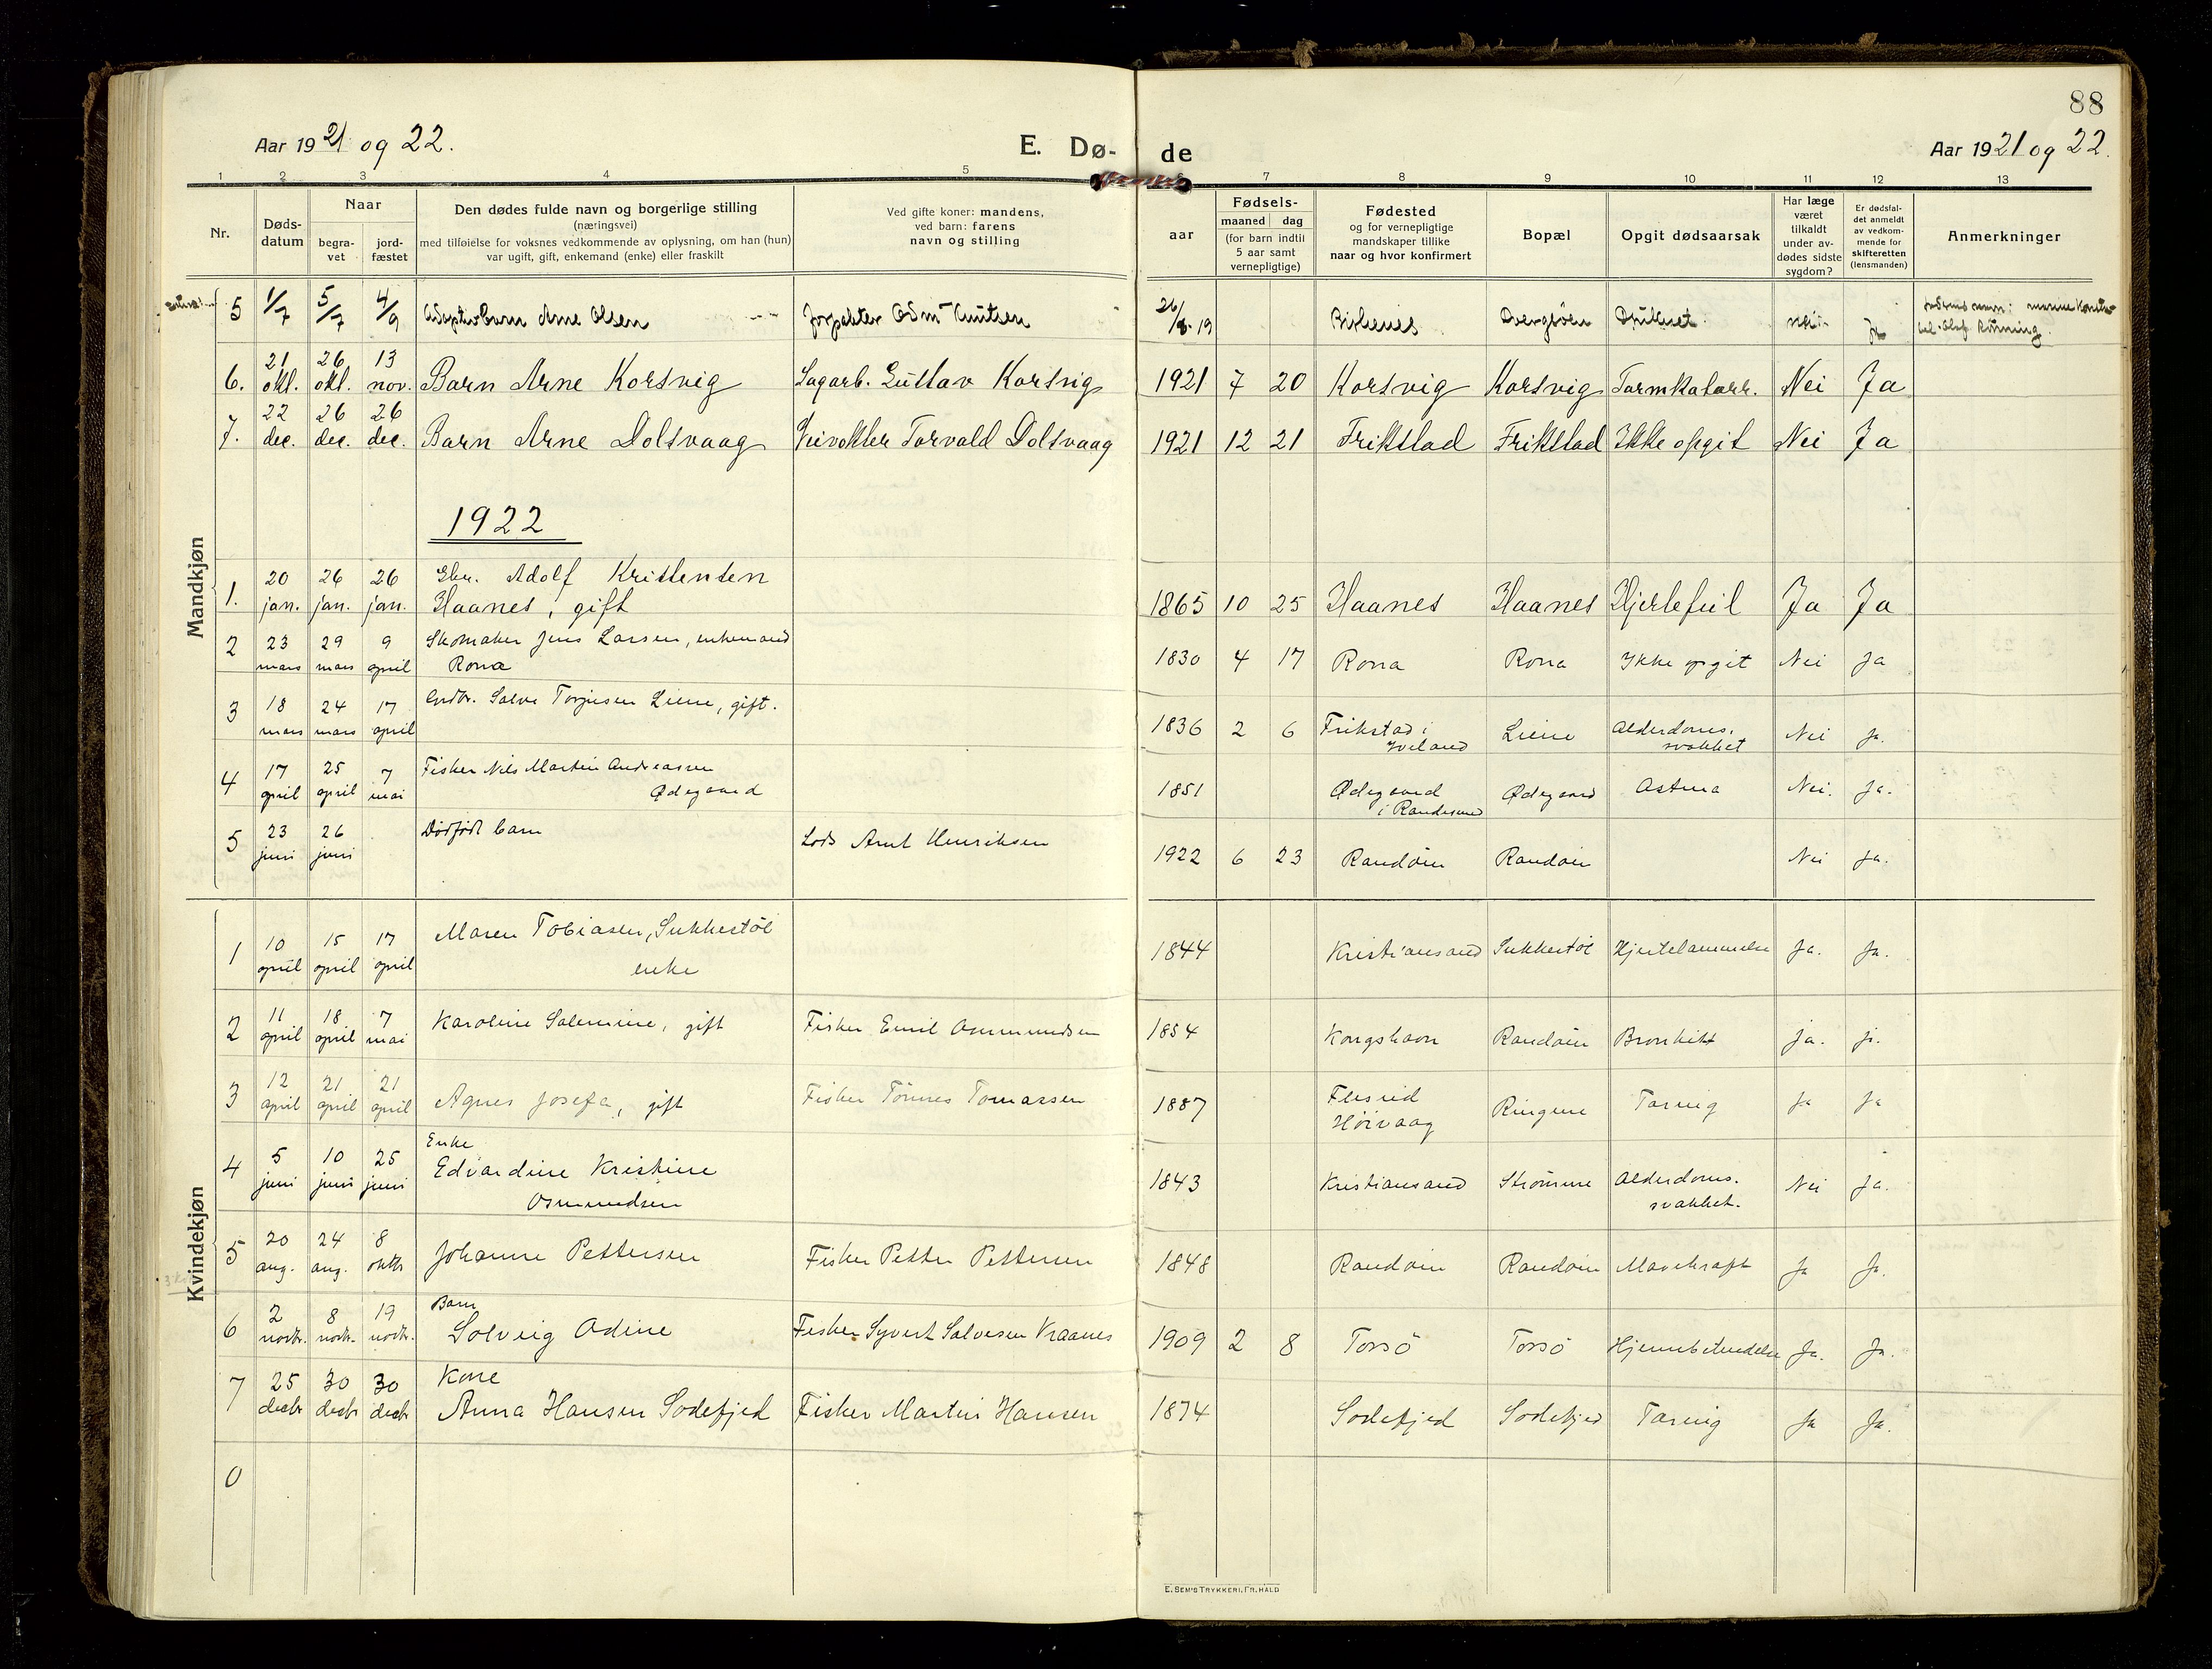 88
Aar 1921 og 22. E. Dø- de Aar 1921 og 22.
1 2 3 4 5 7 8 9 10 11 12 13
Nr.
Døds-
datum
Naar
begra-
vet
jord-
fæstet
Den dødes fulde navn og borgerlige stilling
(næringsvei)
med tilføielse for voksnes vedkommende av oplysning, om han (hun)
var ugift, gift, enkemand (enke) eller fraskilt
Ved gifte koner: mandens,
ved barn: farens
navn og stilling
Fødsels-
aar
maaned dag
(for barn indtil
5 aar samt
vernepligtige)
Fødested
og for vernepligtige
mandskaper tillike
naar og hvor konfirmert
Bopæl
Opgit dødsaarsak
Har læge
været
tilkaldt
under av-
dødes sidste
sygdom?
Er dødsfal-
det anmeldt
av vedkom-
mende for
skifteretten
(lensmanden)
Anmerkninger
Mandkjøn
5 1/7 5/7 4/9 Adoptivbarn Arne Olsen Forpakter Odm Knutsen 26/8-19 Birkenes Dvergsøen Druknet nei Ja
6. 21 okt. 26 okt. 13 nov. Barn Arne Korsvig Sagarb. Gustav Korsvig 1921 7 20 Korsvig Korsvig Tarmkatarr. Nei Ja
7. 22 dec. 26 dec. 26 dec. Barn Arne Dolsvaag Veivokter Torvald Dolsvaag 1921 12 21 Frikstad Frikstad Ikke opgit Nei Ja
1922
1. 20 jan. 26 jan. 26 jan. Gbr. Adolf Kristensen
Haanes, gift 1865 10 25 Haanes Haanes Hjertefeil Ja Ja
2 23 mars 29 mars 9 april Skomaker Jens Larsen, enkemand
Rona 1830 4 17 Rona Rona Ikke opgit Nei Ja
3 18 mars 24 mars 17 april Gaardbr. Salve Torjusen Liene, gift. 1836 2 6 Frikstad i
Iveland Liene Alderdoms-
svakhet Nei Ja.
4 17 april 25 april 7 mai Fisker Nils Martin Andreassen
Ødegaard 1851 Ødegaard
i Randesund Ødegaard Astma Nei. Ja.
5 23 juni 26 juni Dødfødt barn Lods Arnt Henriksen 1922 6 23 Randøen Randøen Nei Ja.
Kvindekjøn
1 10 april 15 april 17 april Maren Tobiasen, Sukkestøl
enke 1844 Kristiansand Sukkestøl Hjertelammelse Ja. Ja.
2 11 april 18 april 7 mai Karoline Salemine, gift Fisker Emil Ommundsen 1854 Kongshavn Randøen Bronkitt Ja. Ja.
3 12 april 21 april 21 april Agnes Josefa, gift Fisker Tønnes Tomassen 1887 Høivaag Ringene Tæring Ja Ja
4 5 juni 10 juni 25 juni Enke
Edvardine Kristine
Osmundsen 1843 Kristiansand Strømme Alderdoms-
svakhet. Nei Ja.
5 20 aug. 24 aug. 8 oktb Johanne Pettersen Fisker Petter Pettersen 1848 Randøen Randøen Mavekræft Ja Ja.
6 2 novbr. 8 novbr. 19 novbr. Barn
Solveig Odine Fisker Syvert Salvesen Kraanes 1909 2 8 Torsø Torsø Hjernebetændelse Ja. Ja.
7 25 decbr 30 decbr 30 decbr Kone
Anna Hansen Sodefjed Fisker Martin Hansen 1874 Sodefjed Sodefjed Tæring Ja Ja.
0
E. SEM'S TRYKKERI, FR.HALD